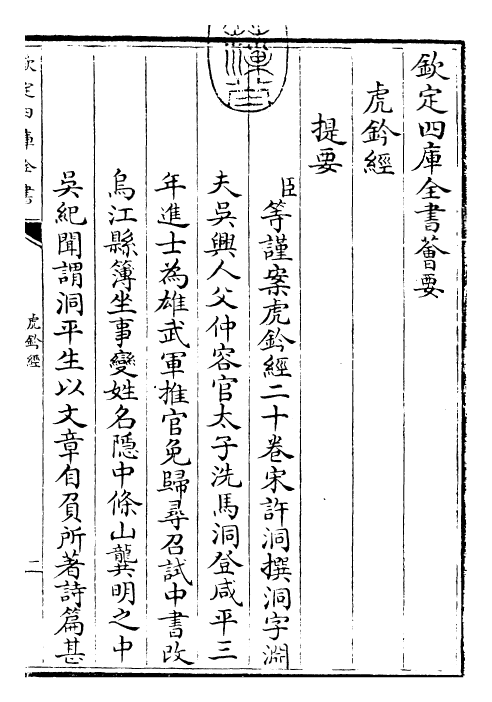 欽定四庫全書薈要
虎鈐經
提要
臣等謹案虎鈐經二十卷宋許洞撰洞字淵
夫吳興人父仲容官太子洗馬洞登咸平三
年進士為雄武軍推官免歸尋召試中書改
烏江縣簿坐事變姓名隱中條山龔明之中
吳紀聞謂洞平生以文章自負所著詩篇甚
欽定四庫全書
虎鈐經
二